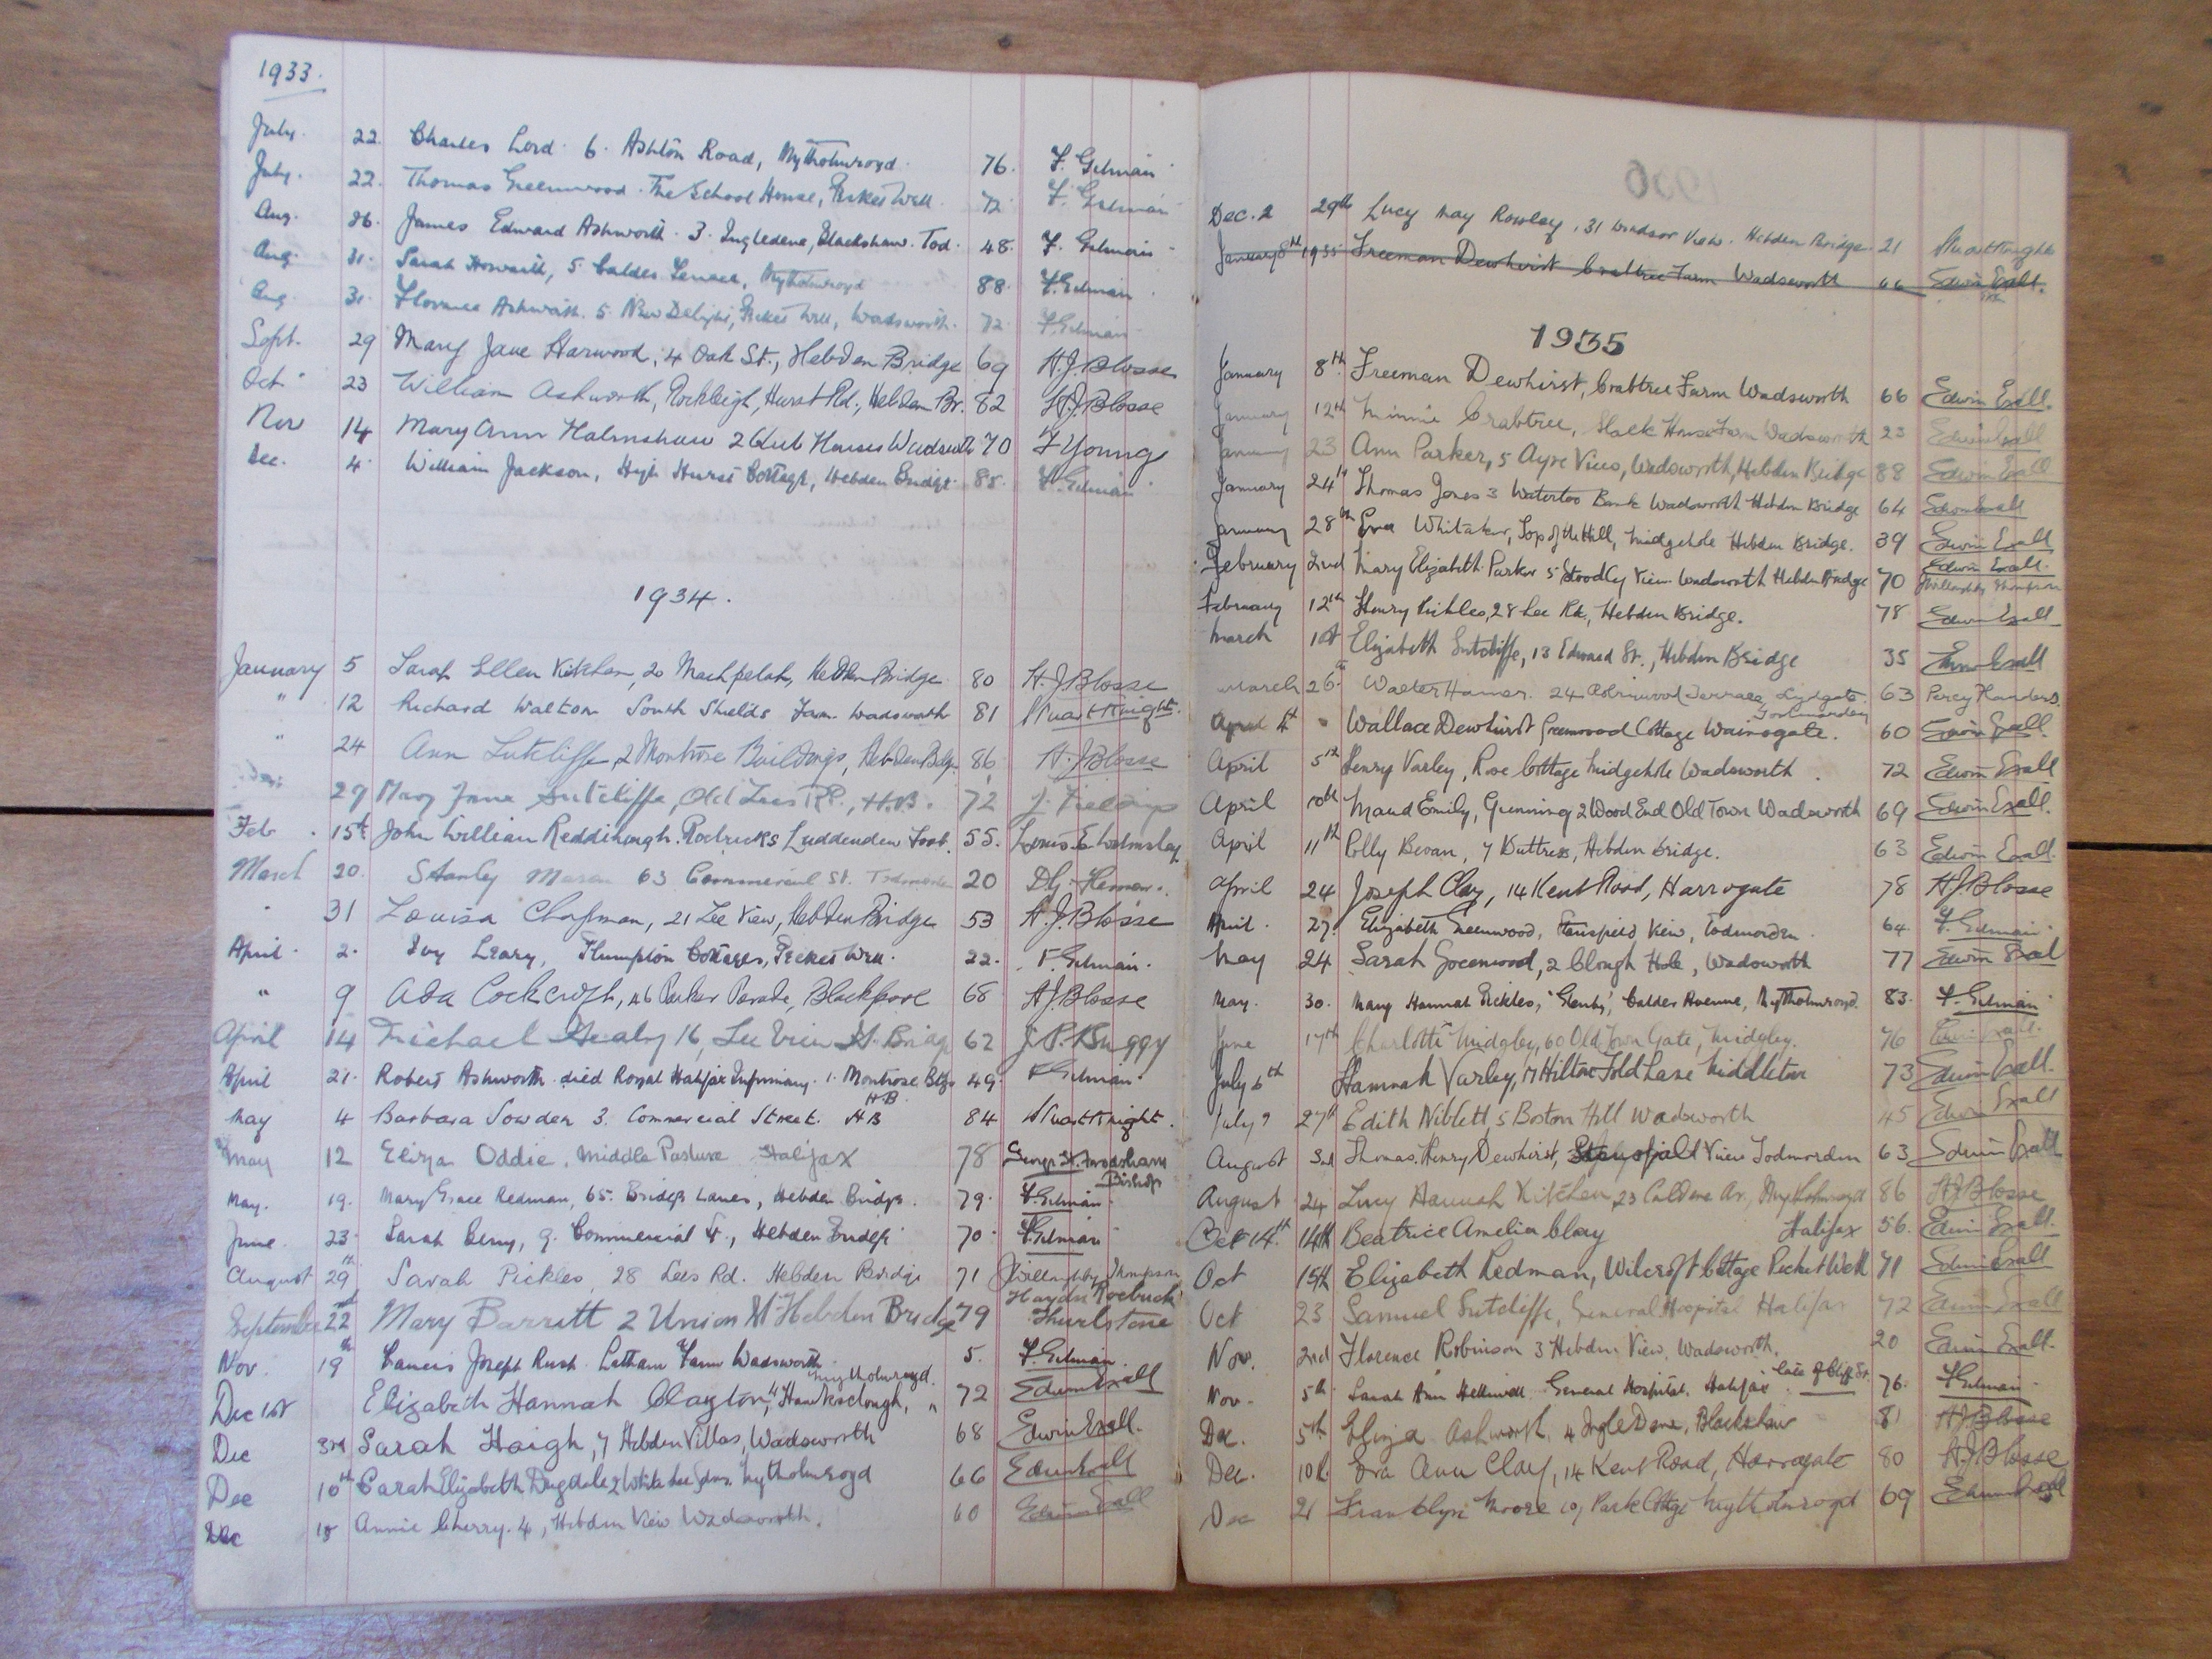 1933.
July. 22. Charles Lord. 6. Ashton Road, Mytholmroyd. 76. F. Gelman
July. 22. Thomas Greenwood. The School House, Pecket Well. 72. F. Gelman
Aug. 26. James Edward Ashworth. 3. Ingledene, Blackshaw. Tod. 48. F. Gelman
Aug. 31. Sarah Howarth, 5. Calder Terrace, Mytholmroyd 88. F. Gelman
Aug 31. Florence Ashworth. 5. New Delight, Pecket Well, Wadsworth. 72. F. Gelman
Sept. 29 Mary Jane Harwood, 4 Oak St., Hebden Bridge 69 H.J. Blosse
Oct. 23 William Ashworth, Rockleigh, Hurst Rd., Hebden Br. 82 H.J. Blosse
Nov 14 Mary Ann Halmshaw 2 Club Houses Wadsworth 70 F Young
Dec. 4. William Jackson, High Hurst Cottage, Hebden Bridge. 85. F. Gelman
1934.
January 5 Sarah Ellen Kitchen, 20 Machpelah, Hebden Bridge 80 H.J. Blosse
" 12 Richard Walton South Shields Farm. Wadsworth 81 Stuart Knight.
" 24 Ann Sutcliffe, 2 Montrose Buildings, Hebden Bdge. 86 H.J. Blosse
29 Mary Jane Sutcliffe, Old Lees Rd., H.B. 72
Feb. 15th John William Reddihough. Luddenden Foot. 55. Louis E Walmsley
March 20. Stanley 63 Commercial St. Todmorden 20
31 Louisa Chapman, 21 Lee View, Hebden Bridge 53 H.J. Blosse
April. 2. Ivy Leary, Plumpton Cottages, Pecket Well. 22. F. Gelman.
" 9 Ada Cockcroft, 46 Parker Parade, Blackpool 68 H.J. Blosse
April 14 Michael Healy 16, Lee View H. Bridge 62 J.P. Buggy
April 21. Robert Ashworth. died Royal Halifax Infirmary. 1. Montrose Bldgs 49. F. Gelman.
H B
May 4 Barbara Sowden 3. Commercial Street. HB 84 Stuart Knight.
May 12 Eliza Oddie, Middle Pasture Halifax 78
Bishop
May. 19. Mary Grace Redman, 65. Bridge Lanes, Hebden Bridge. 79. F. Gelman.
June. 23. Sarah Berry, 9. Commercial St., Hebden Bridge. 70. F. Gelman
August 29th Sarah Pickles 28 Lees Rd. Hebden Bridge 71 J Willoughby Thompson
Haydn Roebuck
September 22nd Mary Barritt 2 Union St Hebden Bridge 79 Thurlstone
Nov. 19th Joseph Rush. Latham Farm Wadsworth. 5. F. Gelman.
Mytholmroyd.
Dec 1st Elizabeth Hannah Clayton, Hawksclough, " 72 Edwin Exall
Dec 3rd Sarah Haigh, 7 Hebden Villas, Wadsworth 68 Edwin Exall.
Dec 10th Sarah Elizabeth Dugdale 2 White Lee Mytholmroyd 66 Edwin Exall
Dec 18 Annie Cherry. 4, Hebden View Wadsworth. 60 Edwin Exall
Dec. 2 29th Lucy May Rowley, 31 Windsor View. Hebden Bridge. 21 Stuart Knight
January 8th 1935 Freeman Dewhirst Crabtree Farm Wadsworth 66 Edwin Exall.
1935
January 8th Freeman Dewhirst, Crabtree Farm Wadsworth 66 Edwin Exall.
January 12th Minnie Crabtree, Slack House Farm Wadsworth 23 Edwin Exall
January 23 Ann Parker, 5 Ayre View, Wadsworth, Hebden Bridge 88 Edwin Exall
January 24th Thomas Jones 3 Waterloo Bank Wadsworth Hebden Bridge 64 Edwin Exall
January 28th Eva Whitaker, Top of the Hill, Midgehole Hebden Bridge. 39 Edwin Exall
Edwin Exall.
February 2nd Mary Elizabeth Parker 5 Stoodley View Wadsworth Hebden Bridge 70 J Willoughby Thompson
February 12th Henry Pickles, 28 Lee Rd., Hebden Bridge. 78 Edwin Exall
March 1st Elizabeth Sutcliffe, 13 Edward St., Hebden Bridge 35 Edwin Exall
March 26th Walter Hamer. 24 Robinwood Terrace Lydgate. 63 Percy Flanders.
Todmorden
April 4th Wallace Dewhirst Greenwood Cottage Wainsgate. 60 Edwin Exall.
April 5th Henry Varley, Rose Cottage Midgehole Wadsworth. 72 Edwin Exall
April 10th Maud Emily, Gunning 2 Wood End Old Town Wadsworth 69 Edwin Exall.
April 11th Polly Bevan, 7 Buttress, Hebden Bridge. 63 Edwin Exall.
April 24 Joseph Clay, 14 Kent Road, Harrogate 78 H.J. Blosse
April. 27. Elizabeth Greenwood, Stansfield View, Todmorden. 64. F. Gelman.
May 24 Sarah Greenwood, 2 Clough Hole, Wadsworth 77 Edwin Exall
May. 30. Mary Hannah Pickles, Calder Avenue, Mytholmroyd. 83. F. Gelman
June 17th Charlotte Midgley, 60 Old Town Gate, Midgley. 76 Edwin Exall.
July 6th Hannah Varley, 17 Hilton Fold Lane Middleton 73 Edwin Exall.
July 27th Edith Niblett, 5 Boston Hill Wadsworth 45 Edwin Exall
August 3rd Thomas Henry Dewhirst, Stansfield View Todmorden 63 Edwin Exall
August 24 Lucy Hannah Kitchen, 23 Caldene Av, Mytholmroyd 86 H.J. Blosse
Oct 14th. 14th Beatrice Amelia Clay Halifax 56. Edwin Exall.
Oct 15th Elizabeth Redman, Wilcroft Cottage Pecket Well 71 Edwin Exall
Oct 23 Samuel Sutcliffe, General Hospital Halifax 72 Edwin Exall
Nov. 2nd Florence Robinson 3 Hebden View, Wadsworth. 20 Edwin Exall.
Nov. 5th Sarah Ann Helliwell General Hospital, Halifax. late of Cliff St. 76. F. Gelman.
Dec. 5th Eliza Ashworth 4 Ingle Dene, Blackshaw 81 H.J. Blosse
Dec. 10th Eva Ann Clay, 14 Kent Road, Harrogate 80 H.J. Blosse
Dec 21 Franklyn Moore 10, Park Cottage Mytholmroyd 69 Edwin Exall